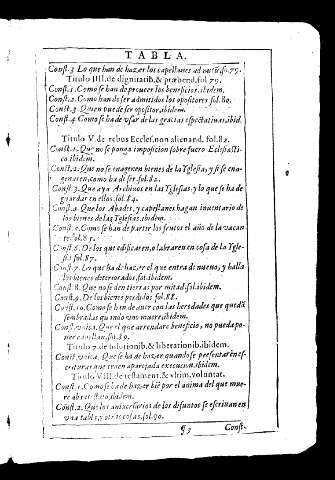 TABLA.
Const.3 Lo que han de hazer los capellanes ad nutũ, fo.79.
Titulo IIII. de dignitatib. & præbend. fol.79.
Const.1. Como se han de proueer los beneficios, ibidem.
Const.2. Como han de ser admitidos los opositores fol.80.
Const.3 Quien puede ser opositor, ibidem.
Const.4 Como se ha de vsar de las gracias espectatiuas, ibid.
Titulo V. de rebus Eccles. non alienand. fol.82.
Const.1. Que no se ponga imposicion sobre fuero Ecclesiasti-
co ibidem.
Const.2. Que no se enagenen bienes de la Iglesia, y si se ena-
genaren, como ha de ser. fol.82.
Const.3. Que aya Archiuos en las Iglesias, y lo que se ha de
guardar en ellos. fol.84.
Const.4. Que los Abades, y capellanes hagan inuentario de
los bienes de las Iglesias, ibidem.
Const.5. Como se han de partir los frutos el año de la vacan
te. fol.85.
Const.6. De los que edificaren, o labraren en cosa de la Igle-
sia fol.87.
Const.7. Lo que ha de hazer el que entra de nueuo, y halla
los bienes deteriorados, fol. ibidem.
Const.8. Que no se den tierras por mitad. fol. ibidem.
Const.9. De los bienes perdidos fol.88.
Const.10. Como se han de auer con las heredades que quedã
sembradas quando vno muere, ibidem.
Const. vnica. Que el que arrendare beneficio, no pueda po-
ner en ellas, fol.89.
Titulo 7. de solutionib. & liberationib. ibidem.
Const. vnica. Que se ha de hazer quando se presentarẽ es-
crituras que traen aparejada execucion, ibidem.
Titulo VIII. de testament. & vltim. voluntat.
Const.1. Como se ha de hazer biẽ por el anima del que mue-
re abintestato, ibidem.
Const.2. Que los aniuersarios de los difuntos se escriuan en
vna tabla, y otras cosas. fol.90.
¶3 Const.